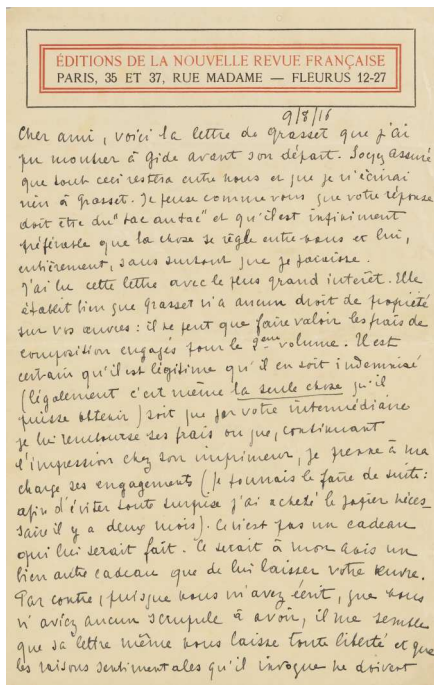 ÉDITIONS DE LA NOUVELLE REVUE FRANÇAISE
PARIS, 35 ET 37, RUE MADAME — FLEURUS 12-27
9/8/16
Cher ami, voici la lettre de Grasset que j'ai
pu montrer à Gide avant son départ. Soyez assuré
que tout ceci restera entre nous et que je n'écrirai
rien à Grasset. Je pense comme vous que votre réponse
doit être du "tac au tac" et qu'il est infiniment
préférable que la chose se règle entre vous et lui,
entièrement, sans surtout que je paraisse.
J'ai lu cette lettre avec le plus grand intérêt. Elle
établit bien que Grasset n'a aucun droit de propriété
sur vos œuvres : il ne peut que faire valoir les frais de
composition engagés pour le 2ème volume. Il est
certain qu'il est légitime qu'il en soit indemnisé
(légalement c'est même la seule chose qu'il
puisse obtenir) soit que par votre intermédiaire
je lui rembourse ses frais ou que, continuant
l'impression chez son imprimeur, je prenne à ma
charge ses engagements (je pourrais le faire de suite :
afin d'éviter toute surprise j'ai acheté le papier néces-
saire il y a deux mois). Ce n'est pas un cadeau
qui lui serait fait. Ce serait à mon avis un
bien autre cadeau que de lui laisser votre œuvre.
Par contre, puisque vous m'avez écrit, que vous
n'aviez aucun scrupule à avoir, il me semble
que sa lettre même vous laisse toute liberté et que
les raisons sentimentales qu'il invoque ne doivent